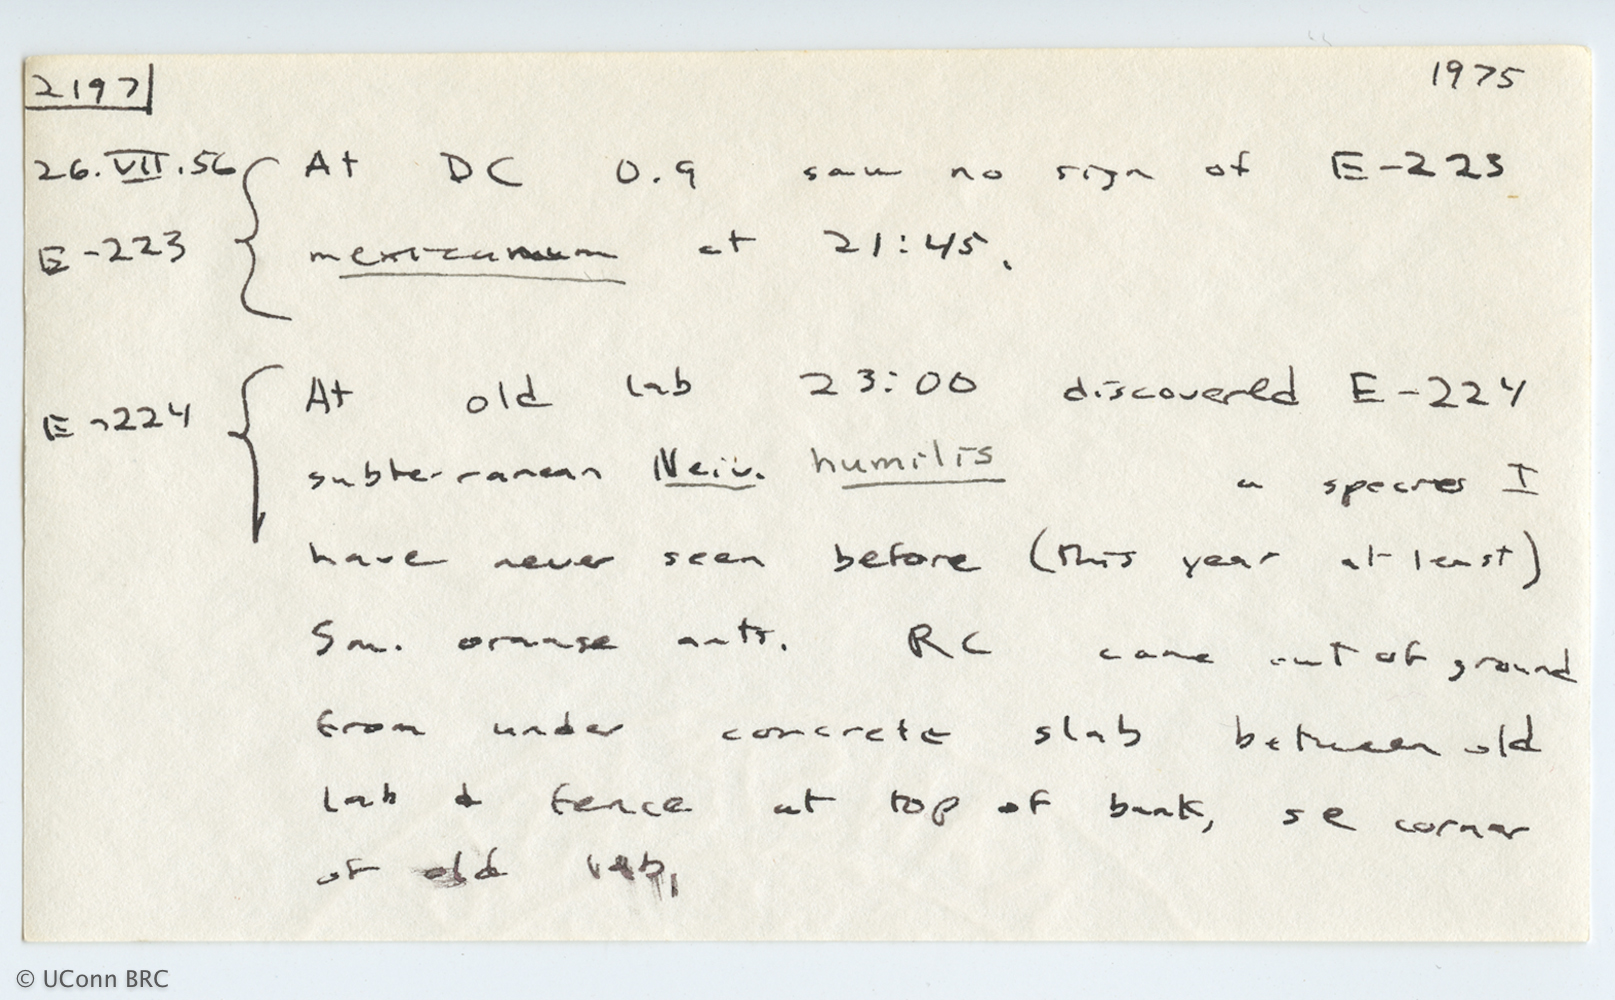 2197 1975
26.VII.56 At DC 0.9 saw no sign of E-223
E-223 mexicanum at 21:45.
E-224 At old lab 23:00 discovered E-224
subterranean Neiv. humilis a species I
have never seen before (this year at least)
Sm. orange ants. RC came out of ground
from under concrete slab between old
lab & fence at top of bank, SE corner
of old lab.
© UConn BRC